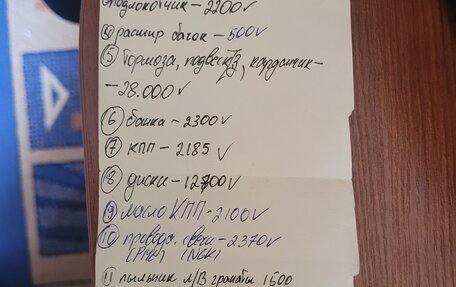 подлокотчик - 2200 v
④ расшир бачок - 500 v
⑤ Тормоза, подвеска, карданчик -
- 28.000 v
⑥ банка - 2300 v
⑦ КПП - 2185 v
⑧ диски - 12700 v
⑨ масло КПП - 2100 v
⑩ провода. свечи - 2370 v
(NGK)
⑪ пыльник л/в гранаты 1500